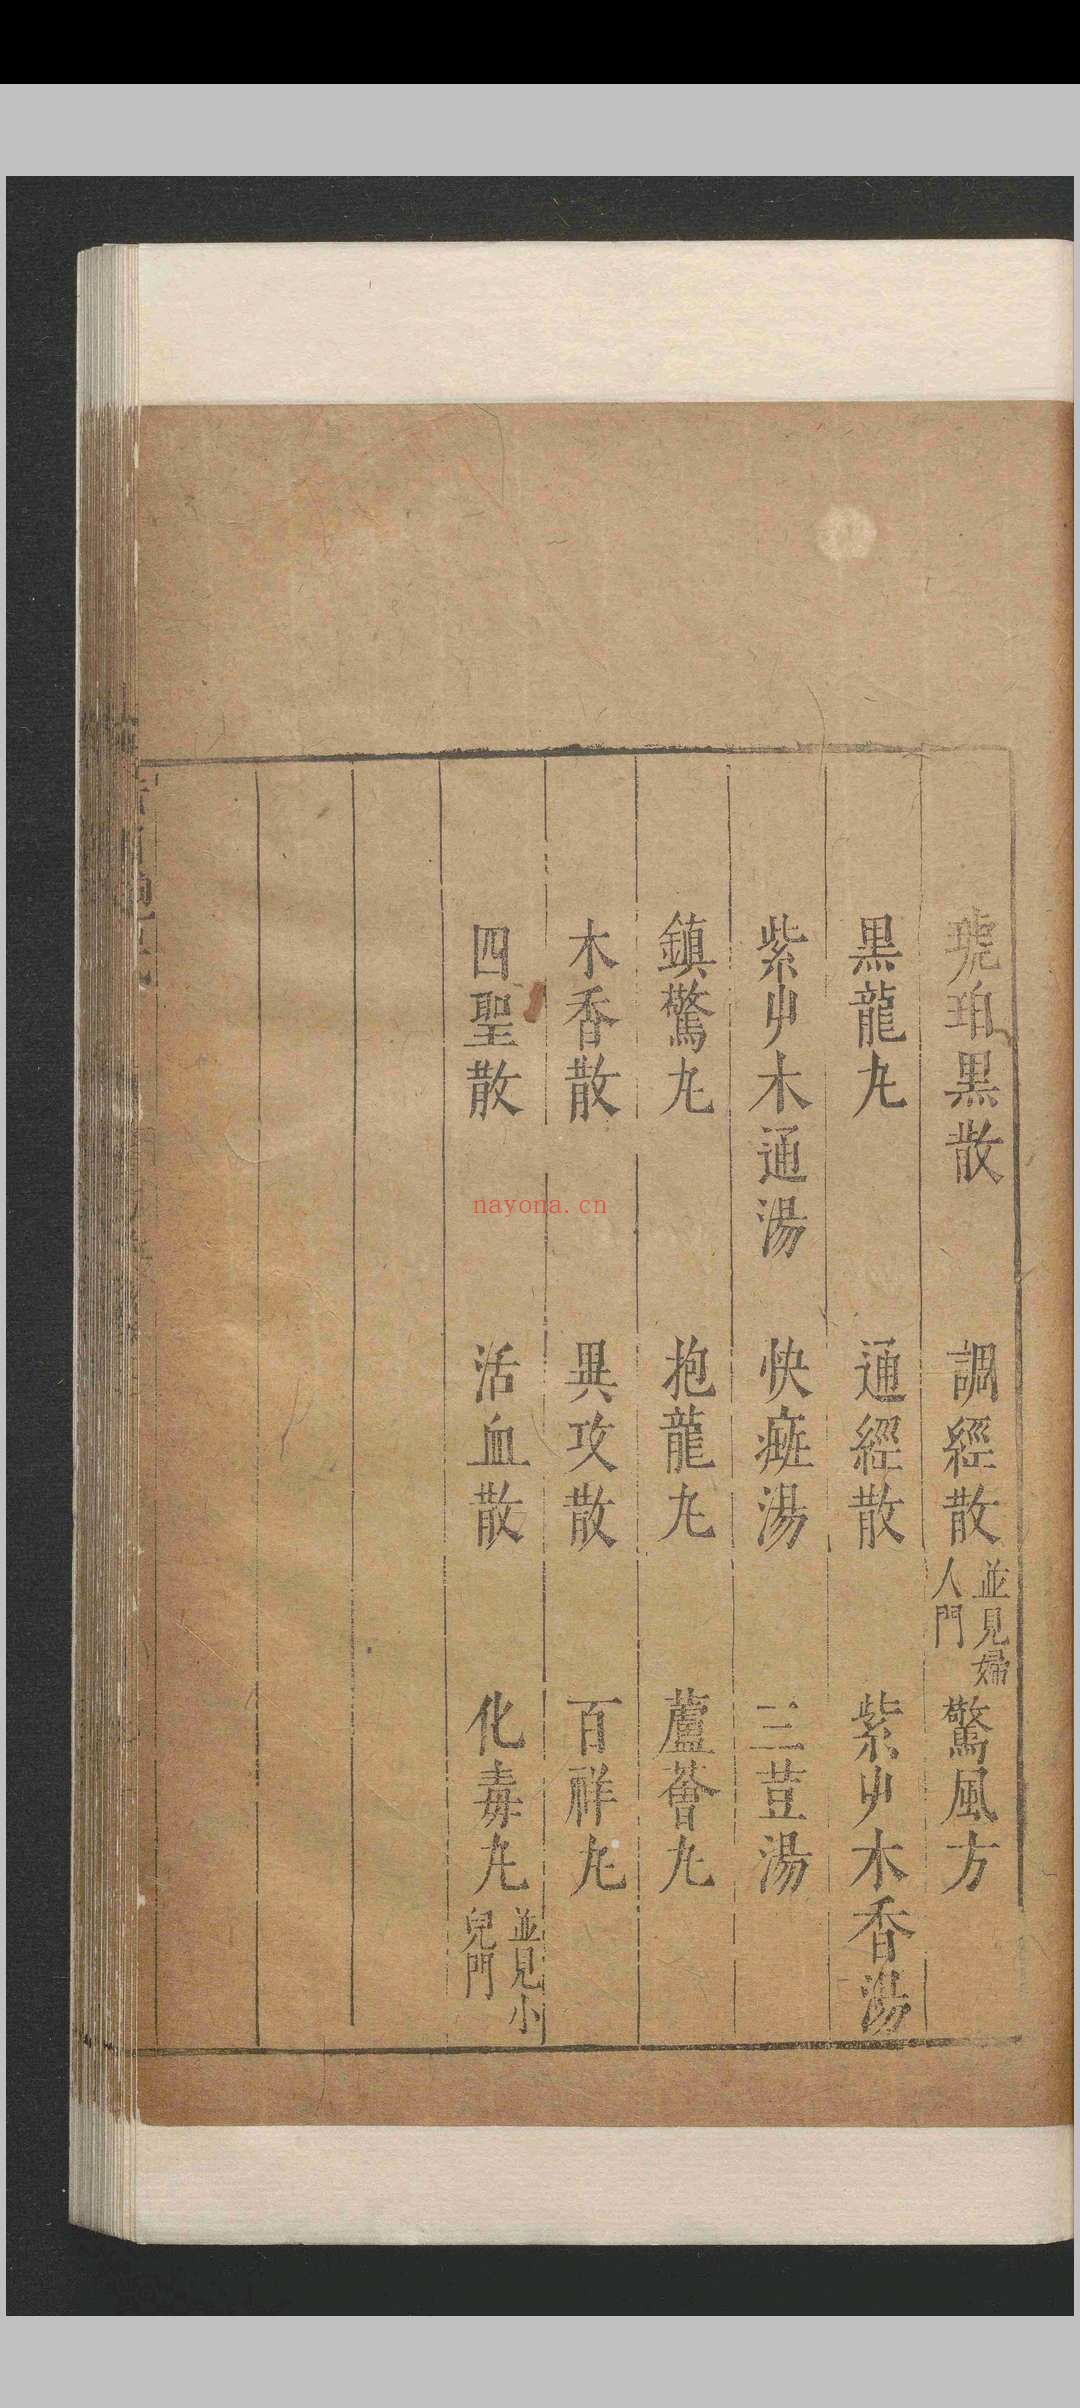 琥珀黒散　調經散並見婦人門　驚風方
黒龍丸　通經散　紫屮木香湯
紫屮木通湯　快癍湯　三荳湯
鎮驚丸　抱龍丸　蘆薈丸
木香散　異攻散　百祥丸
四聖散　活血散　化毒丸並見小兒門
nayona.cn